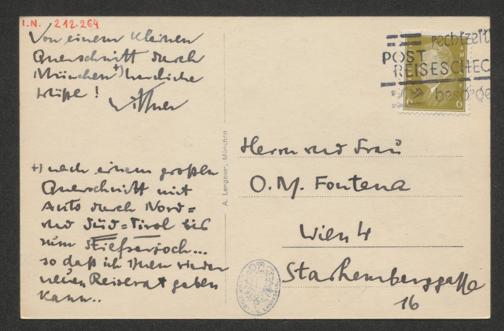 I.N. 212.264
Von einem kleinen
Querschnitt durch
München +) herzliche
Grüße!
+) nach einem großen
Querschnitt mit
Auto durch Nord=
und Süd=Tirol bis
zum Stilfserjoch...
so daß ich Ihnen wieder
neuen Reiserat geben
kann..
A. Lengauer, München
rechtzeit
POST
REISESCHEC
besorge
6 6
Herrn und Frau
O. M. Fontana
Wien 4
Starhemberggasse
16